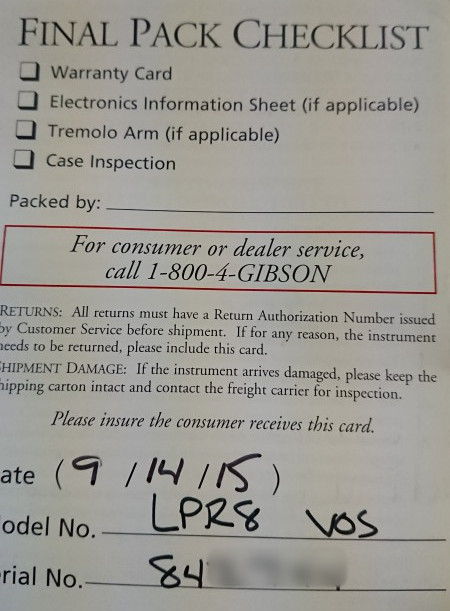 FINAL PACK CHECKLIST
Warranty Card
Electronics Information Sheet (if applicable)
Tremolo Arm (if applicable)
Case Inspection
Packed by:
For consumer or dealer service,
call 1-800-4-GIBSON
RETURNS: All returns must have a Return Authorization Number issued
by Customer Service before shipment. If for any reason, the instrument
needs to be returned, please include this card.
SHIPMENT DAMAGE: If the instrument arrives damaged, please keep the
shipping carton intact and contact the freight carrier for inspection.
Please insure the consumer receives this card.
ate (9/14/15)
odel No. LPR8 VOS
rial No. 84